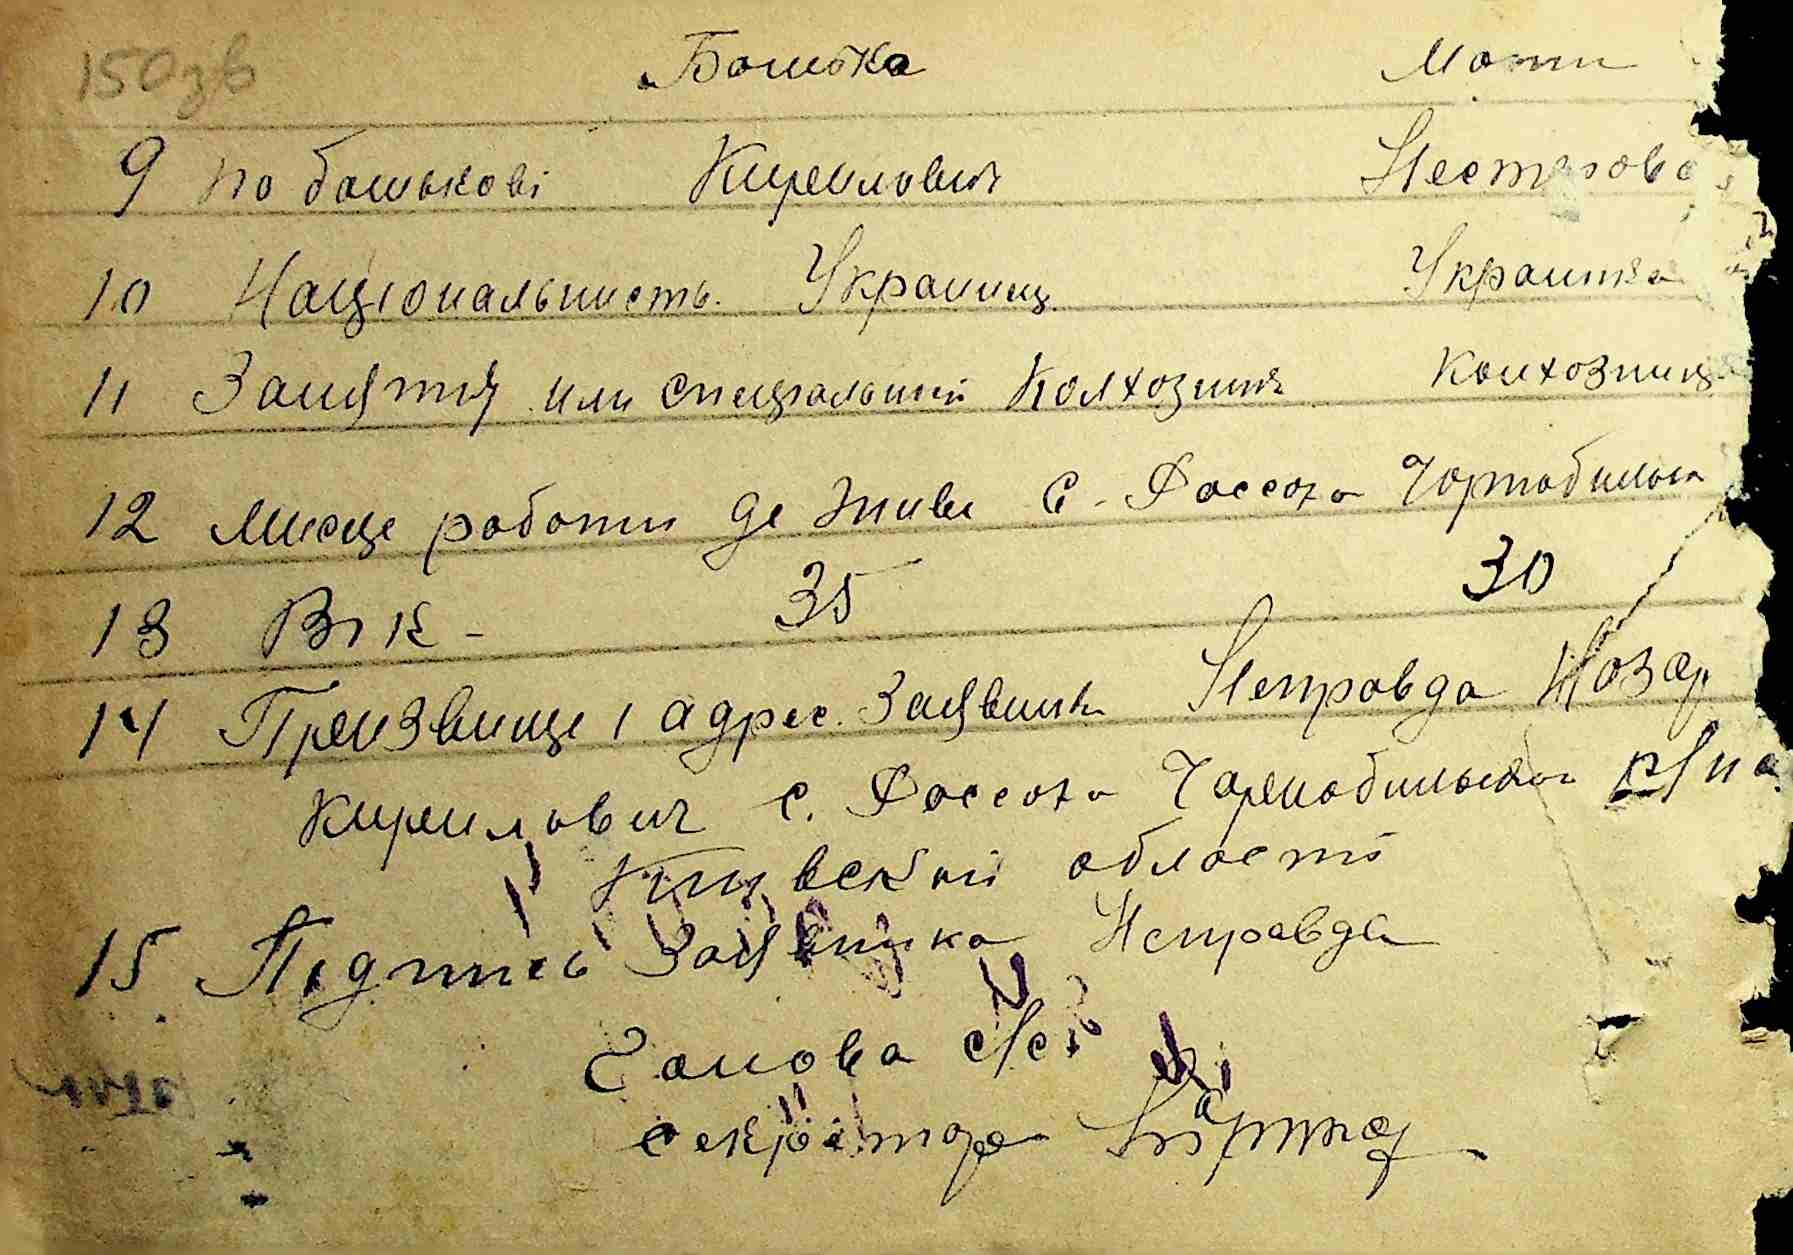 150зв
Батька Мати
9 по батькові Кирилович Нестерова
10 Національність. Украинец Украинка
11 Заняття или специальний Колхозник Колхозниц
12 Мисце работи де живе С. Россоха Чорнобильск
13 Вік - 35 30
14 Призвище і адрес. Заявника Неправда Назар
Кирилович с. Россоха Чарнобильской р/на
Киівской області
15 Підпись Заявника Неправда
Голова с/с
секрітарь